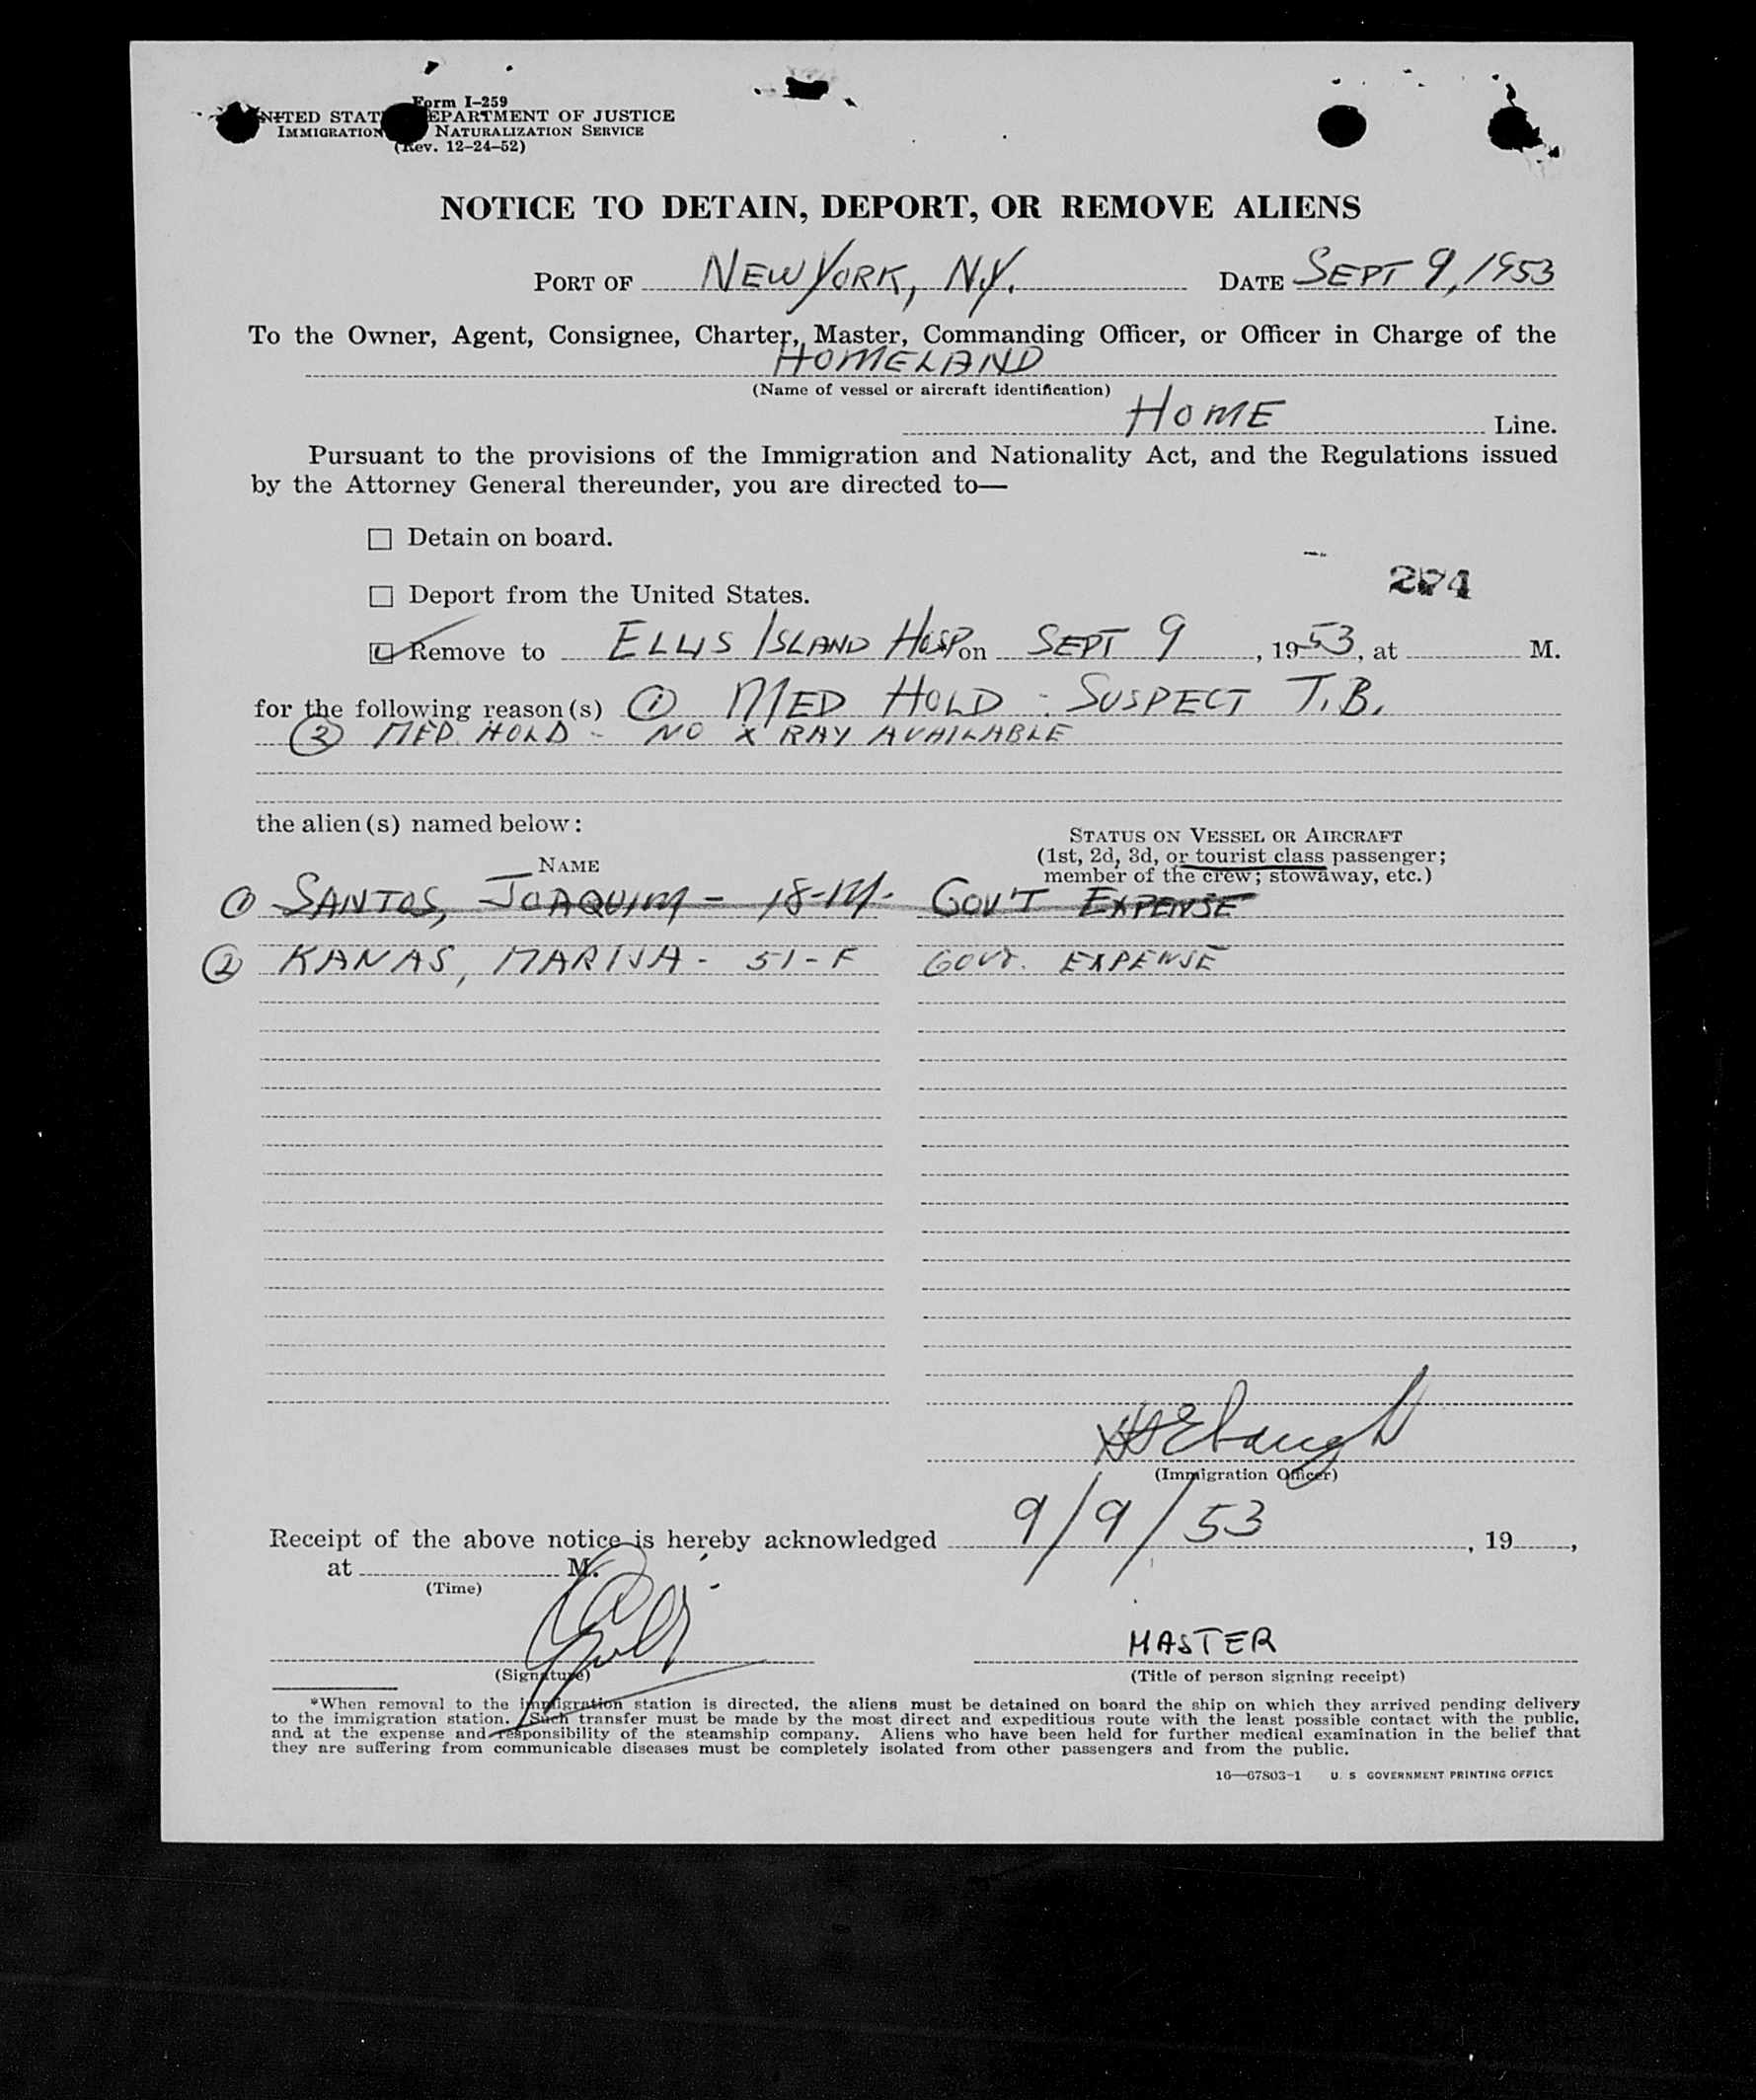 Form I-259
UNITED STATES DEPARTMENT OF JUSTICE
IMMIGRATION NATURALIZATION SERVICE
(Rev. 12-24-52)
NOTICE TO DETAIN, DEPORT, OR REMOVE ALIENS
PORT OF NEW YORK, N.Y. DATE SEPT 9, 1953
To the Owner, Agent, Consignee, Charter, Master, Commanding Officer, or Officer in Charge of the
HOMELAND
(Name of vessel or aircraft identification)
HOME Line.
Pursuant to the provisions of the Immigration and Nationality Act, and the Regulations issued
by the Attorney General thereunder, you are directed to—
Detain on board.
Deport from the United States.
Remove to ELLIS ISLAND HOSP on SEPT 9, 1953, at M.
for the following reason(s) ① MED HOLD - SUSPECT T.B.
② MED. HOLD - NO X RAY AVAILABLE
the alien(s) named below:
STATUS ON VESSEL OR AIRCRAFT
(1st, 2d, 3d, or tourist class passenger;
member of the crew; stowaway, etc.)
NAME
① SANTOS, JOAQUIM - 18-M. GOV'T EXPENSE
② KANAS, MARIJA - 51-F GOVT. EXPENSE
(Immigration Officer)
Receipt of the above notice is hereby acknowledged 9/9/53, 19,
at M.
(Time)
MASTER
(Signature) (Title of person signing receipt)
*When removal to the immigration station is directed, the aliens must be detained on board the ship on which they arrived pending delivery
to the immigration station. Such transfer must be made by the most direct and expeditious route with the least possible contact with the public,
and at the expense and responsibility of the steamship company. Aliens who have been held for further medical examination in the belief that
they are suffering from communicable diseases must be completely isolated from other passengers and from the public.
16—67803-1 U. S GOVERNMENT PRINTING OFFICE